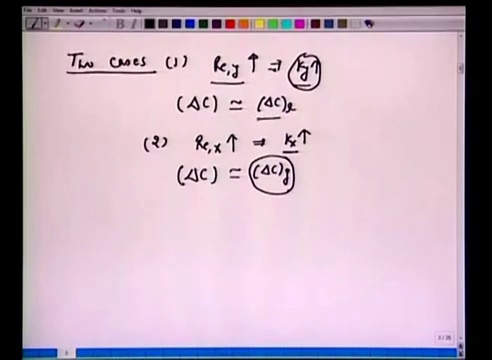 File Edit View Insert Actions Tools Help
Two cases (1) Re,y ↑ ⇒ Ky↑
(ΔC) ≃ (ΔC)x
(2) Re,x ↑ ⇒ Kx↑
(ΔC) ≃ (ΔC)y